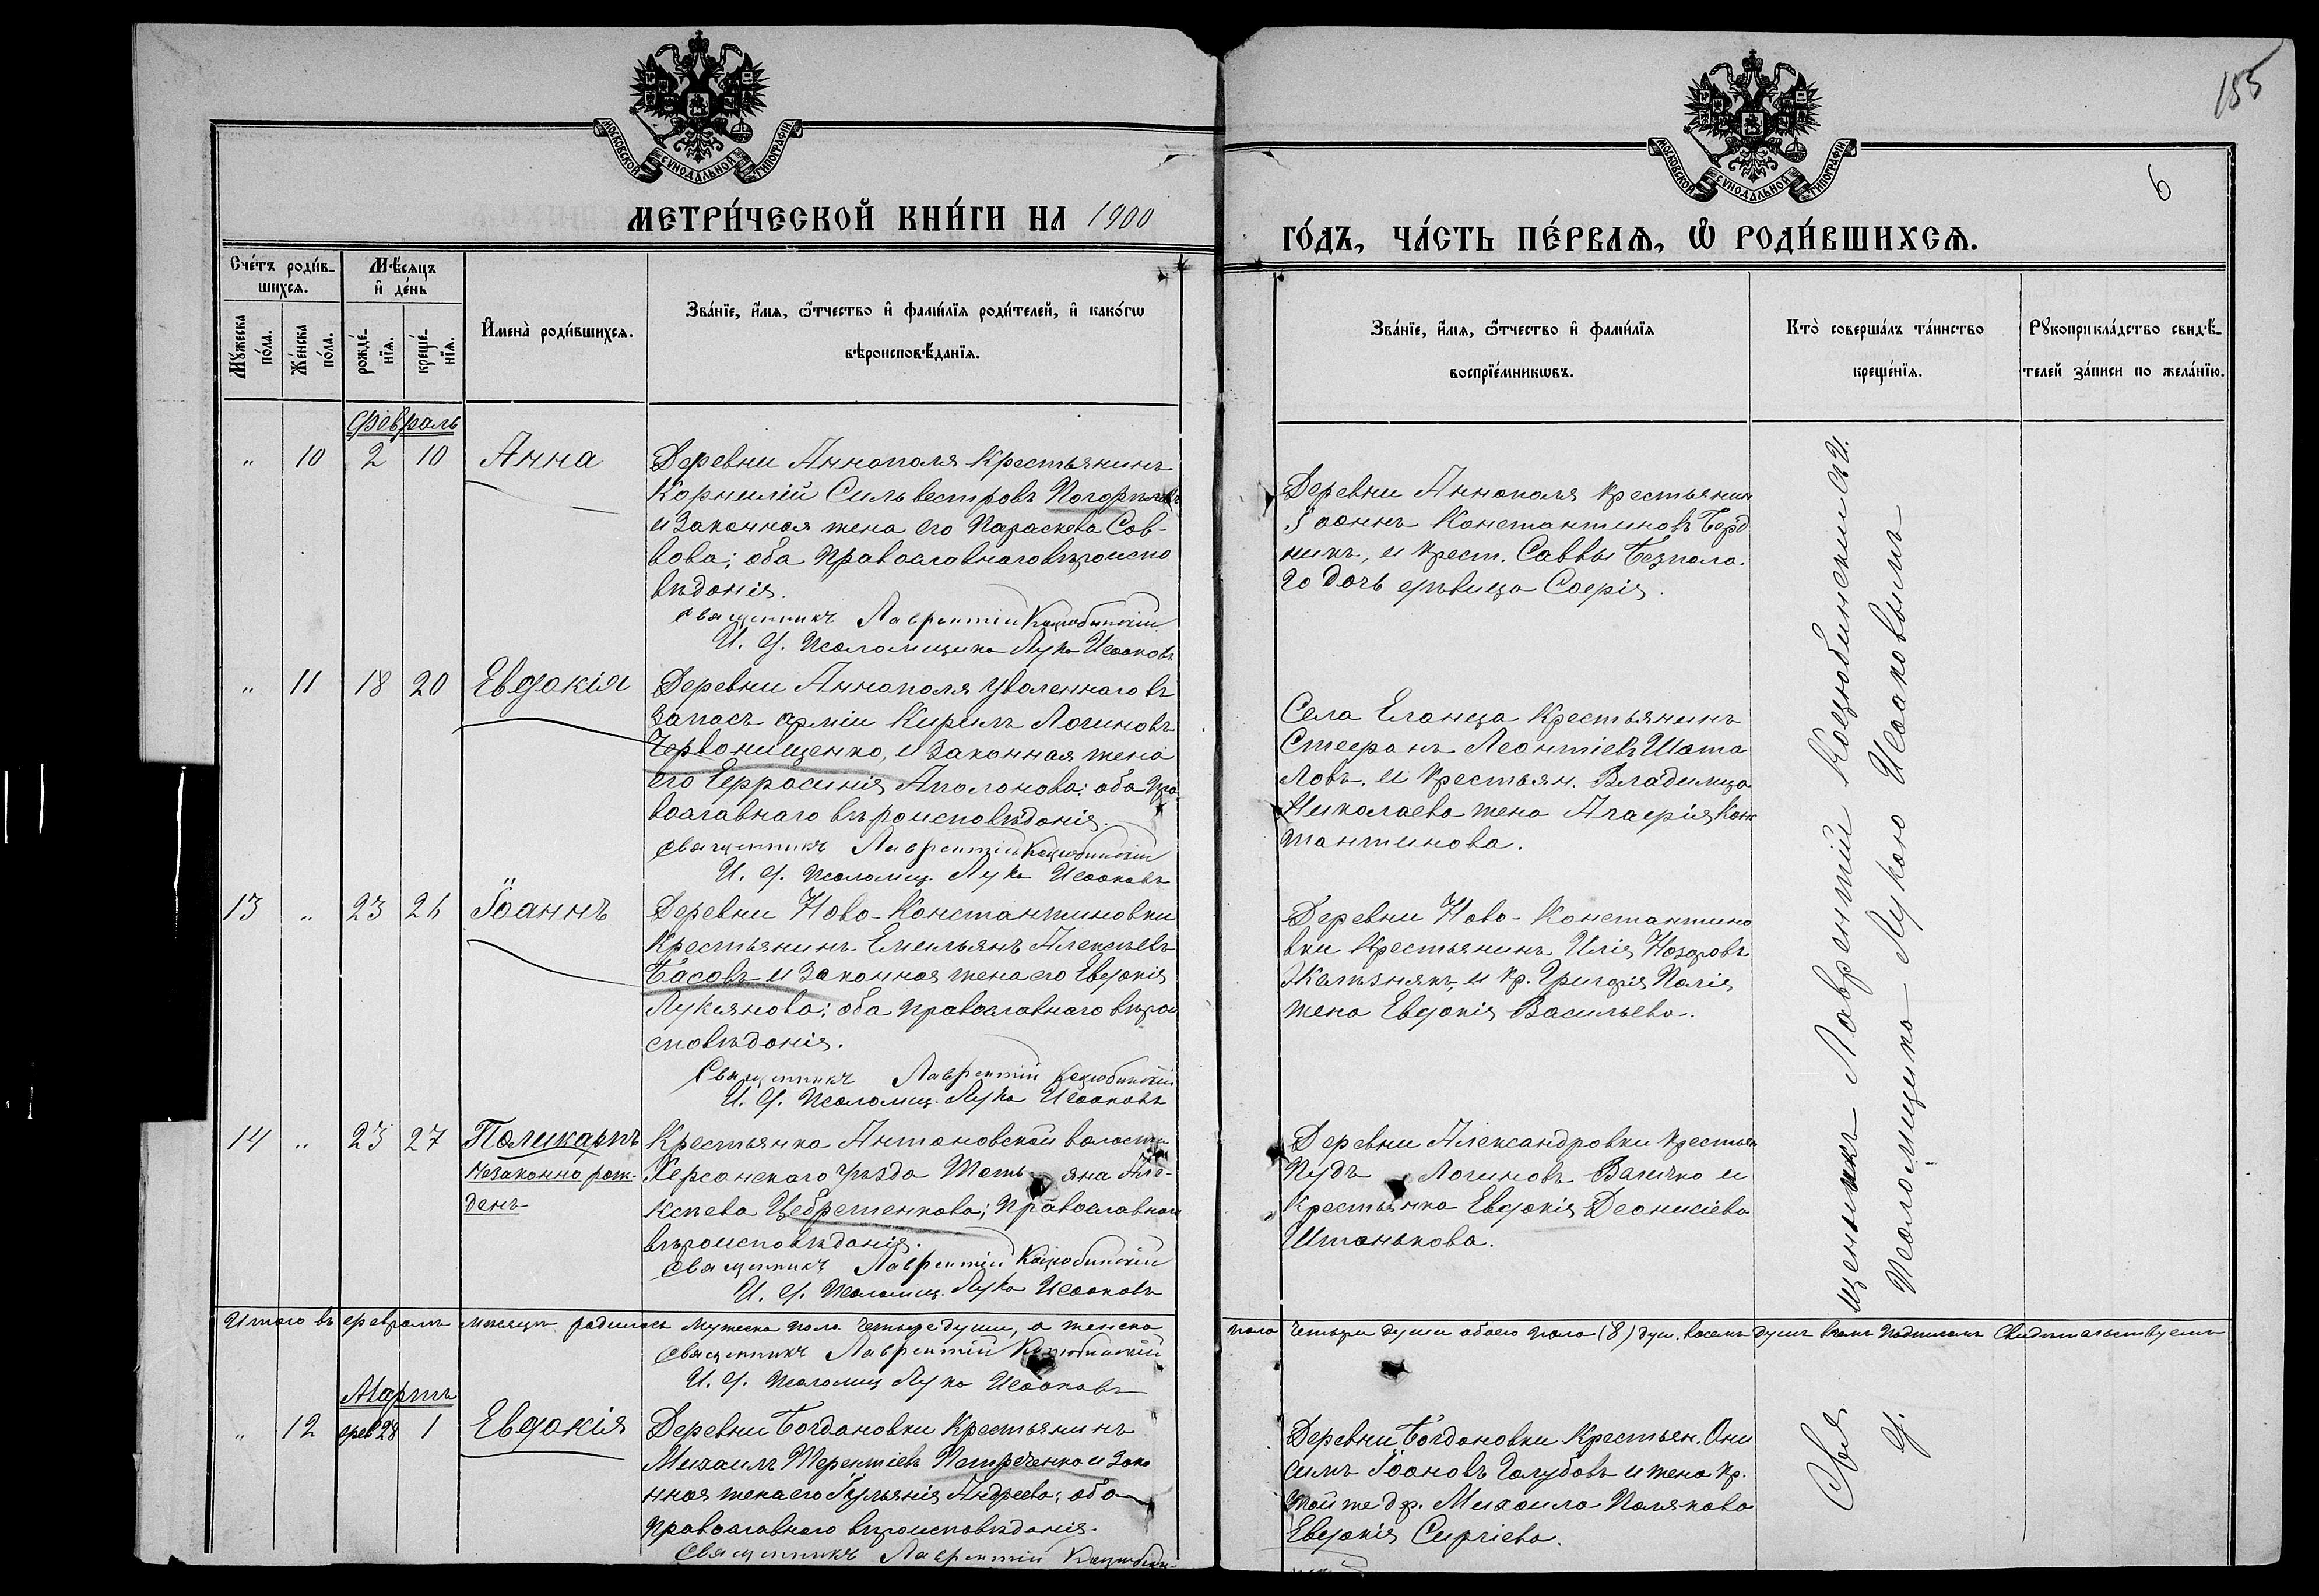 155
6
МОСКОВСКОЙ СѴНОДАЛЬНОЙ ТИПОГРАФІИ
МОСКОВСКОЙ СѴНОДАЛЬНОЙ ТИПОГРАФІИ
МЕТРИ́ЧЕСКОЙ КНИ́ГИ НА 1900
ГО́ДЪ, ЧА́СТЬ ПЕ́РВАѦ, Ѡ҆ РОДИ́ВШИХСѦ.
Сче́тъ роди́в-
шихсѧ.
Мꙋ́жеска по́ла.
Же́нска по́ла.
Мѣ́сѧцъ
и҆ де́нь
рожде́-
нїѧ.
креще́-
нїѧ.
И҆мена̀ роди́вшихсѧ.
Зва́нїе, и҆́мѧ, ѻ҆́тчество и҆ фами́лїѧ роди́телей, и҆ како́гѡ
вѣроисповѣ́данїѧ.
Зва́нїе, и҆́мѧ, ѻ҆́тчество и҆ фами́лїѧ
воспрїе́мникѡвъ.
Кто̀ соверша́лъ та́инство
креще́нїѧ.
Рꙋкоприкла́дство свидѣ́-
телей за́писи по жела́нїю.
Февраль
" 10 2 10 Анна
Деревни Аннополя крестьянинъ
Корнилій Сильвестровъ
и законная жена его Параскева Сав-
вова; оба православнаго вѣроиспо
вѣданія.
Священникъ Лаврентій Коцюбинскій
И. д. Псаломщика Лука Исааковъ
Деревни Аннополя крестьянин
Іоаннъ Константиновъ Берд
никъ, и крест. Саввы Безпала-
го дочь дѣвица Софія.
" 11 18 20 Евдокія
Деревни Аннополя уволеннаго въ
запасъ арміи Кирилъ Логиновъ
Червонищенко, и законная жена
его Ефросинія Аполонова; оба пра
вославнаго вѣроисповѣданія.
Священникъ Лаврентій Коцюбинскій
И. д. Псаломщ. Лука Исааковъ
Села Еланца крестьянинъ
Стефанъ Леонтіевъ Шата
ловъ, и крестьян. Владимира
Николаева жена Агафія Конс
тантинова.
13 " 23 26 Іоаннъ
Деревни Ново-Константиновки
крестьянинъ Емельянъ Алексѣевъ
Басовъ и законная жена его Евдокія
Лукьянова; оба православнаго вѣрои
сповѣданія.
Священникъ Лаврентій Коцюбинскій
И. д. Псаломщ. Лука Исааковъ
Деревни Ново-Константино
вки крестьянинъ Илія Назаровъ
Желѣзнякъ, и кр. Григорія Палія
жена Евдокія Васильева.
14 " 23 27 Поликарпъ
Незаконно рож-
денъ
Крестьянка Антоновской волости
Херсонскаго уѣзда Татьяна Але-
ксѣева Цебретенкова; православнаго
вѣроисповѣданія.
Священникъ Лаврентій Коцюбинскій
И. д. Псаломщ. Лука Исааковъ
Деревни Александровки крестьян
Логиновъ Величко и
крестьянка Евдокія Деонисіева
Штанькова.
щенникъ Лаврентій Коцюбинскій съ И.
Псаломщика Лукою Исааковымъ
Итого въ февралѣ мѣсяцѣ родилось мужеска пола четыре души, а женска
пола четыри души обоего пола (8) душ. восемь душъ въ чемъ подписомъ свидѣтельствуемъ
Священникъ Лаврентій Коцюбинскій
И. д. Псаломщ Лука Исааковъ
Мартъ
" 12 фев 28 1 Евдокія
Деревни Богдановки крестьянинъ
Михаилъ Терентіевъ Петреченко и зако
нная жена его Іульянія Андреева; оба
православнаго вѣроисповѣданія.
Священникъ Лаврентій Коцюбин-
Деревни Богдановки крестьян. Они
симъ Іоановъ Голубовъ и жена кр.
той же др. Михаила Полякова
Евдокія Сиргіева.
Свя
д.